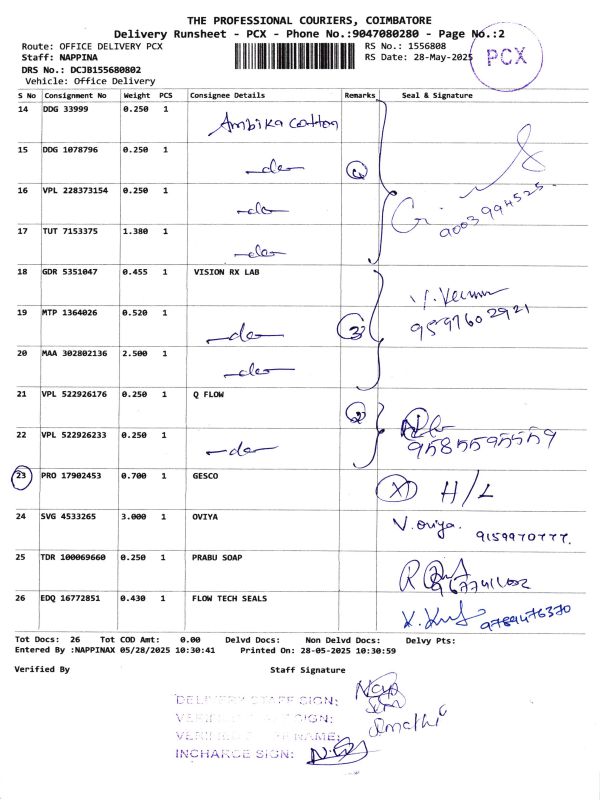 THE PROFESSIONAL COURIERS, COIMBATORE
Delivery Runsheet - PCX - Phone No.:9047080280 - Page No.:2
Route: OFFICE DELIVERY PCX RS No.: 1556808
Staff: NAPPINA RS Date: 28-May-2025
PCX
DRS No.: DCJB155680802
Vehicle: Office Delivery
S No Consignment No Weight PCS Consignee Details Remarks Seal & Signature
14 DDG 33999 0.250 1 Ambika Cotton
15 DDG 1078796 0.250 1 -do- 4
16 VPL 228373154 0.250 1 -do- 9003994525
17 TUT 7153375 1.380 1 -do-
18 GDR 5351047 0.455 1 VISION RX LAB
19 MTP 1364026 0.520 1 -do- 3 9597602921
20 MAA 302802136 2.500 1 -do-
21 VPL 522926176 0.250 1 Q FLOW 2
22 VPL 522926233 0.250 1 -do- 9585595559
23 PRO 17902453 0.700 1 GESCO X H/L
24 SVG 4533265 3.000 1 OVIYA V.oviya. 9159970777.
25 TDR 100069660 0.250 1 PRABU SOAP
26 EDQ 16772851 0.430 1 FLOW TECH SEALS 9789476370
Tot Docs: 26 Tot COD Amt: 0.00 Delvd Docs: Non Delvd Docs: Delvy Pts:
Entered By :NAPPINAX 05/28/2025 10:30:41 Printed On: 28-05-2025 10:30:59
Verified By Staff Signature
DELIVERY STAFF SIGN:
VERIFIED STAFF SIGN:
VERIFIED STAFF NAME:
INCHARGE SIGN: